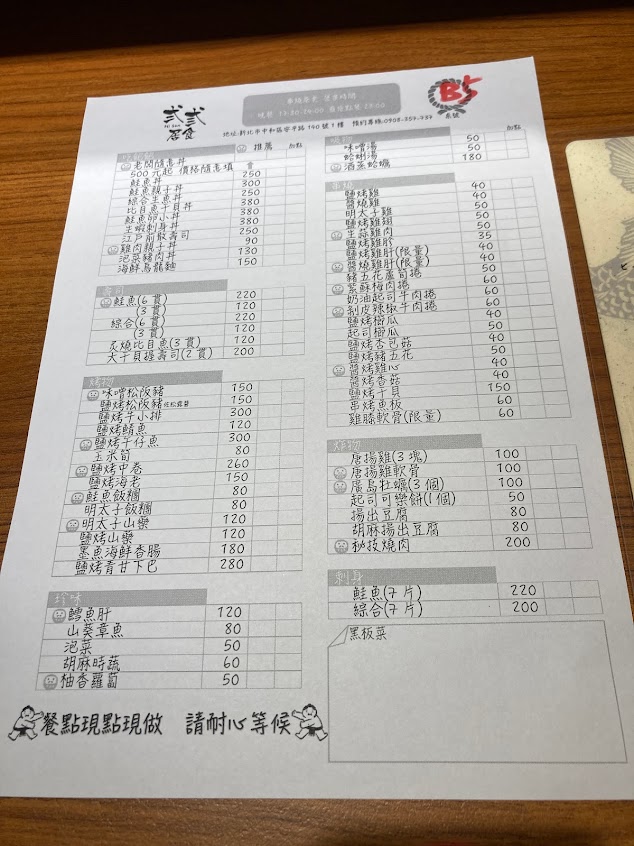 弎弎
居食
營業時間
B5
桌號
地址:新北市中和區安平路140號1樓 預約專線:0908-359-737
推薦 加點
老闆隨意丼
500元起 價格隨意填 $
鮭魚丼 250
鮭魚親子丼 300
綜合生魚丼 250
比目魚干貝丼 380
380
生蝦刺身丼 380
江戶前散壽司 250
雞肉親子丼 90
泡菜豬肉丼 130
海鮮烏龍麵 150
壽司
鮭魚(6貫) 220
(3貫) 120
綜合(6貫) 220
(3貫) 120
炙燒比目魚(3貫) 120
大干貝握壽司(2貫) 200
烤物
味噌松阪豬 150
鹽烤松阪豬 佐松露醬 150
鹽烤牛小排 300
鹽烤鯖魚 120
鹽烤午仔魚 300
玉米筍 80
鹽烤中卷 260
鹽烤海老 150
鮭魚飯糰 80
明太子飯糰 80
明太子山藥 120
鹽烤山藥 120
墨魚海鮮香腸 180
鹽烤青甘下巴 280
珍味
鱈魚肝 120
山葵章魚 80
泡菜 50
胡麻時蔬 60
柚香蘿蔔 50
餐點現點現做 請耐心等候
湯物 加點
味噌湯 50
蛤蜊湯 50
酒蒸蛤蠣 180
串燒
鹽烤雞 40
醬燒雞 40
明太子雞 50
鹽烤雞翅 50
生蒜雞肉 50
鹽烤雞胗 35
鹽烤雞肝(限量) 40
醬燒雞肝(限量) 40
豬五花蘆筍捲 50
紫蘇梅肉捲 60
奶油起司牛肉捲 60
剝皮辣椒牛肉捲 60
鹽烤櫛瓜 40
起司櫛瓜 50
鹽烤杏包菇 40
鹽烤豬五花 50
醬烤雞心 40
醬烤香菇 40
鹽烤干貝 150
串烤魚板 60
雞膝軟骨(限量) 60
炸物
唐揚雞(3塊) 100
唐揚雞軟骨 100
廣島牡蠣(3個) 100
起司可樂餅(1個) 50
揚出豆腐 80
胡麻揚出豆腐 80
秘技燒肉 200
刺身
鮭魚(7片) 220
綜合(7片) 200
黑板菜